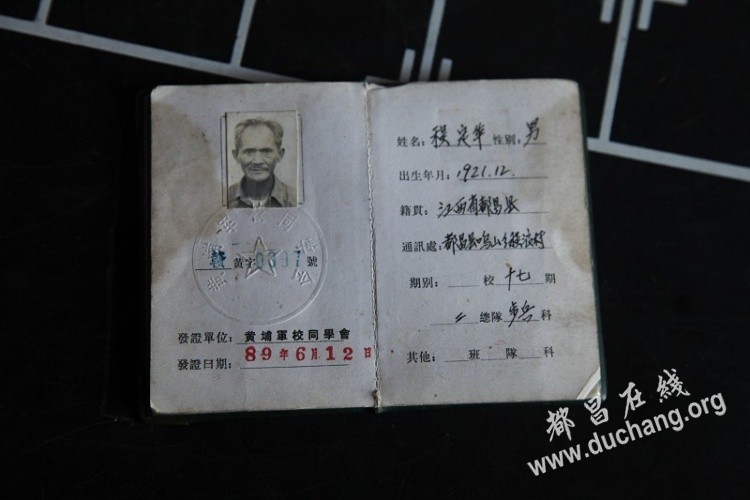 黄字0397號
發證單位：黄埔軍校同學會
發證日期：89年6月12日
姓名：程定華 性别：男
出生年月：1921.12.
籍貫：江西省都昌县
通訊處：都昌县鸣山乡程浪村
期别：校十七期
總隊步兵科
其他：班隊科
都昌在线
www.duchang.org